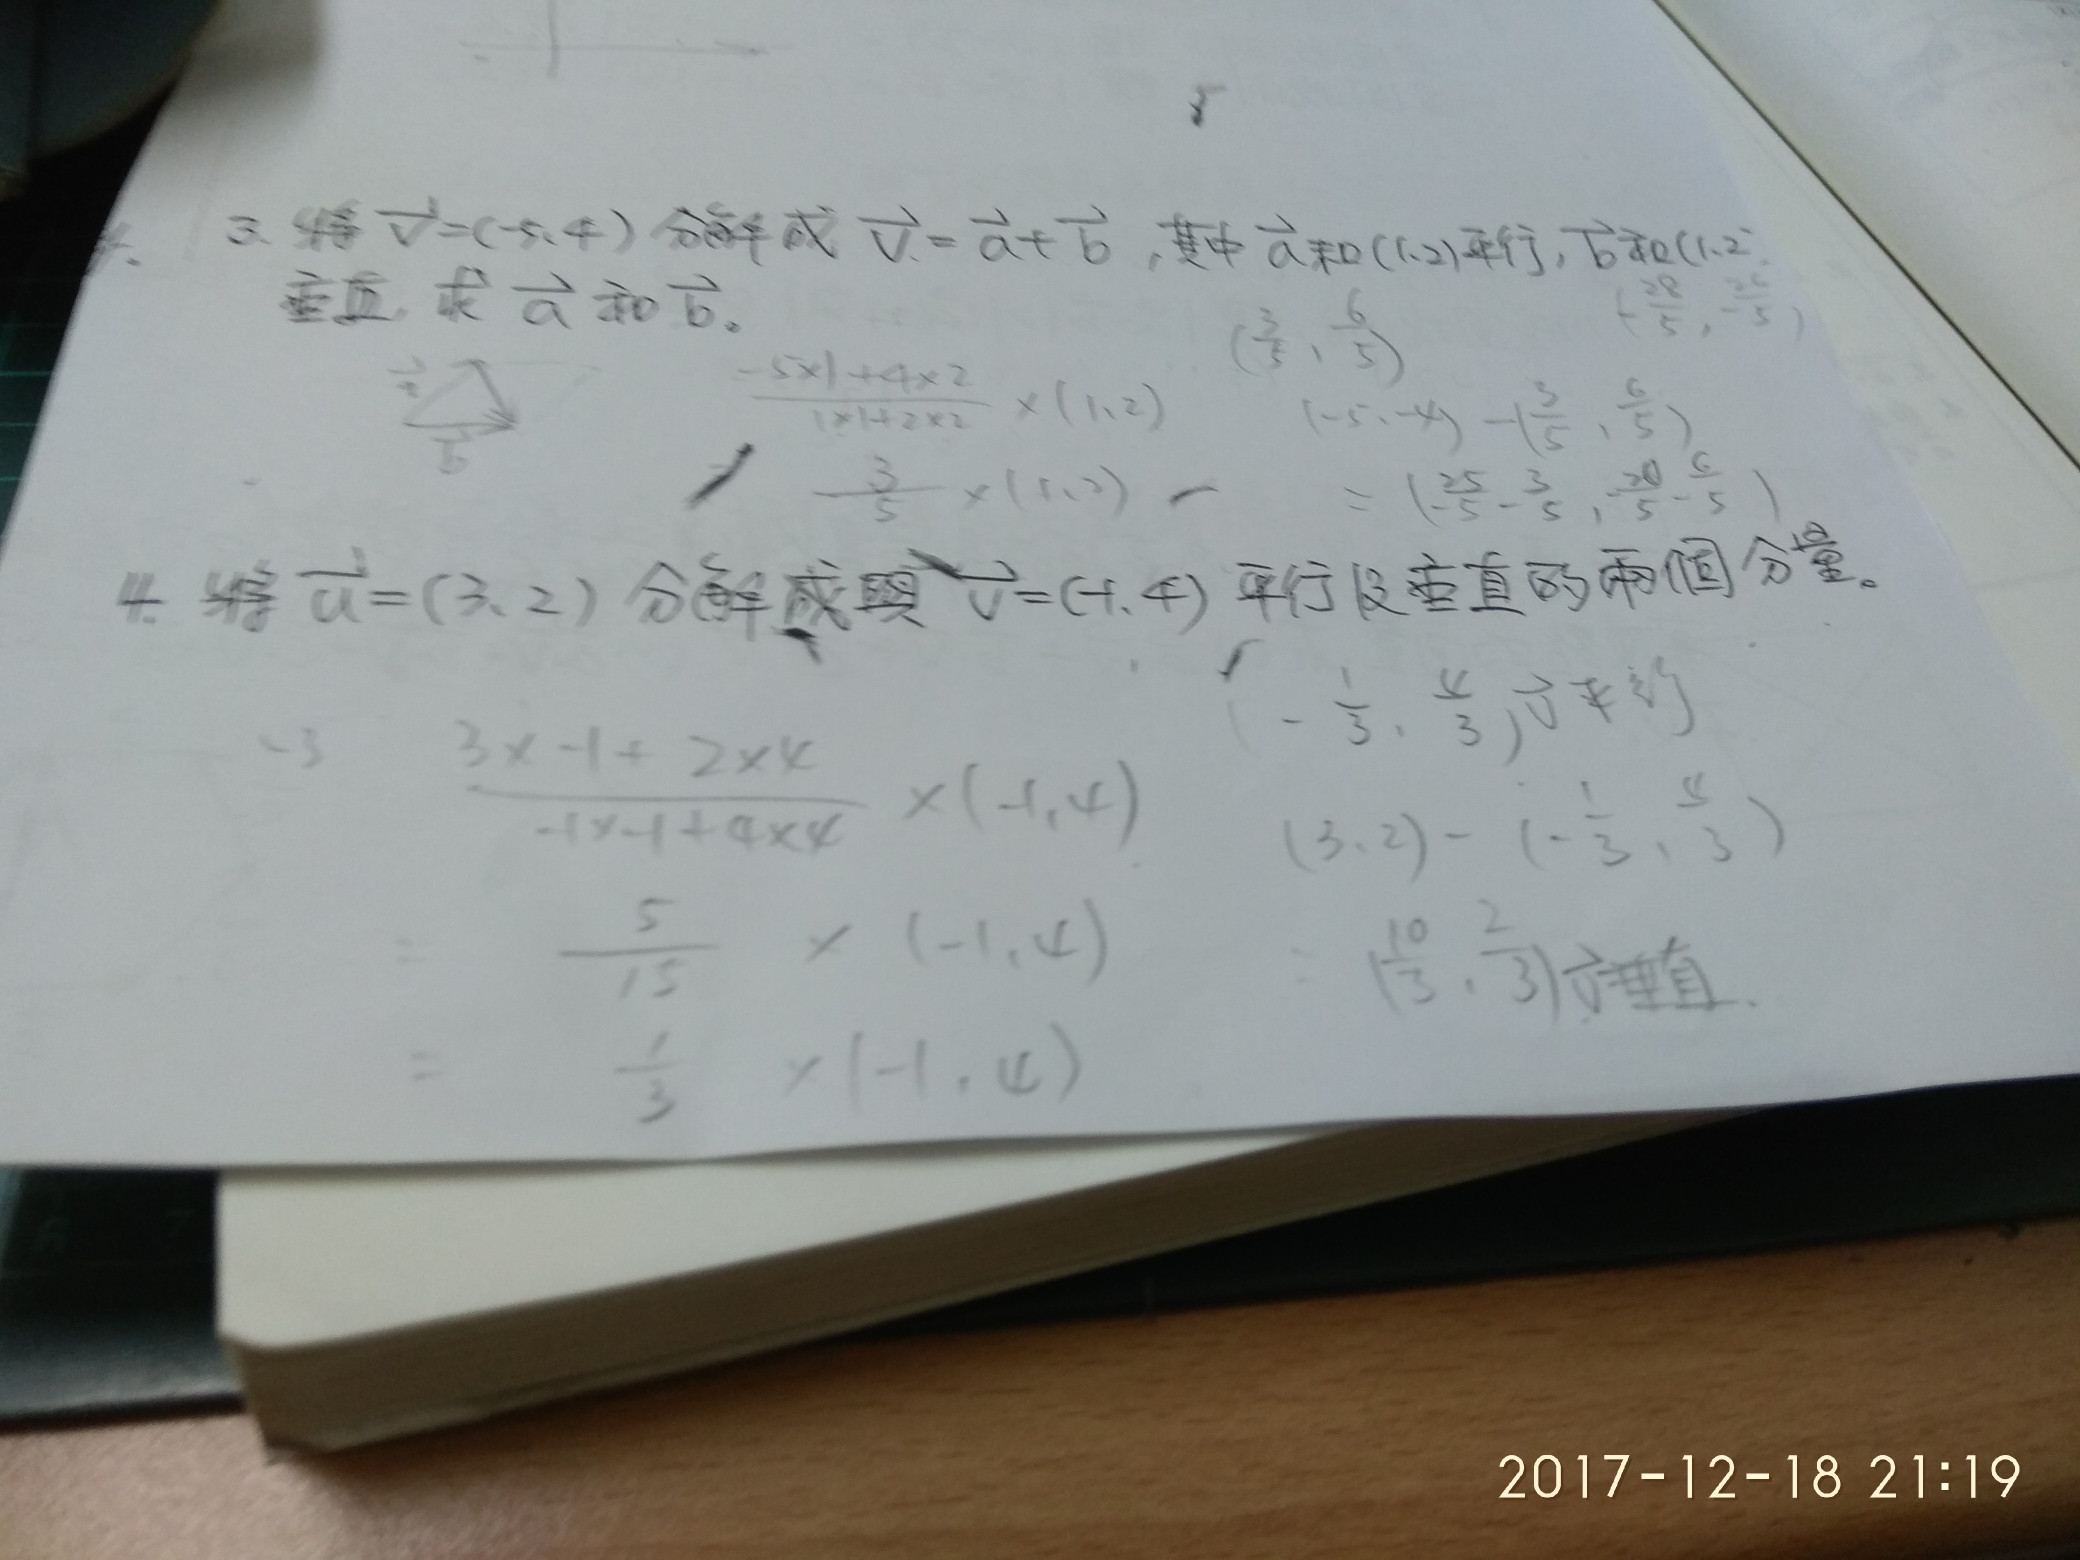 3. 將 v⃗=(-5,4) 分解成 v⃗=a⃗+b⃗,其中a⃗和(1,2)平行,b⃗和(1,2)
垂直,求 a⃗ 和 b⃗。
(3/5, 6/5)
(-28/5, -26/5)
a⃗
b⃗
(-5×1+4×2)/(1×1+2×2) ×(1,2)
3/5 ×(1,2)
(-5,-4) -(3/5, 6/5)
= (-25/5-3/5, -20/5-6/5)
4. 將 a⃗=(3,2) 分解成與 v⃗=(-1,4) 平行及垂直的兩個分量。
-3
(3×-1+2×4)/(-1×-1+4×4) ×(-1,4)
= 5/15 × (-1,4)
= 1/3 ×(-1,4)
(-1/3, 4/3) v⃗平行
(3,2)-(-1/3, 4/3)
= (10/3, 2/3) v⃗垂直.
2017-12-18 21:19